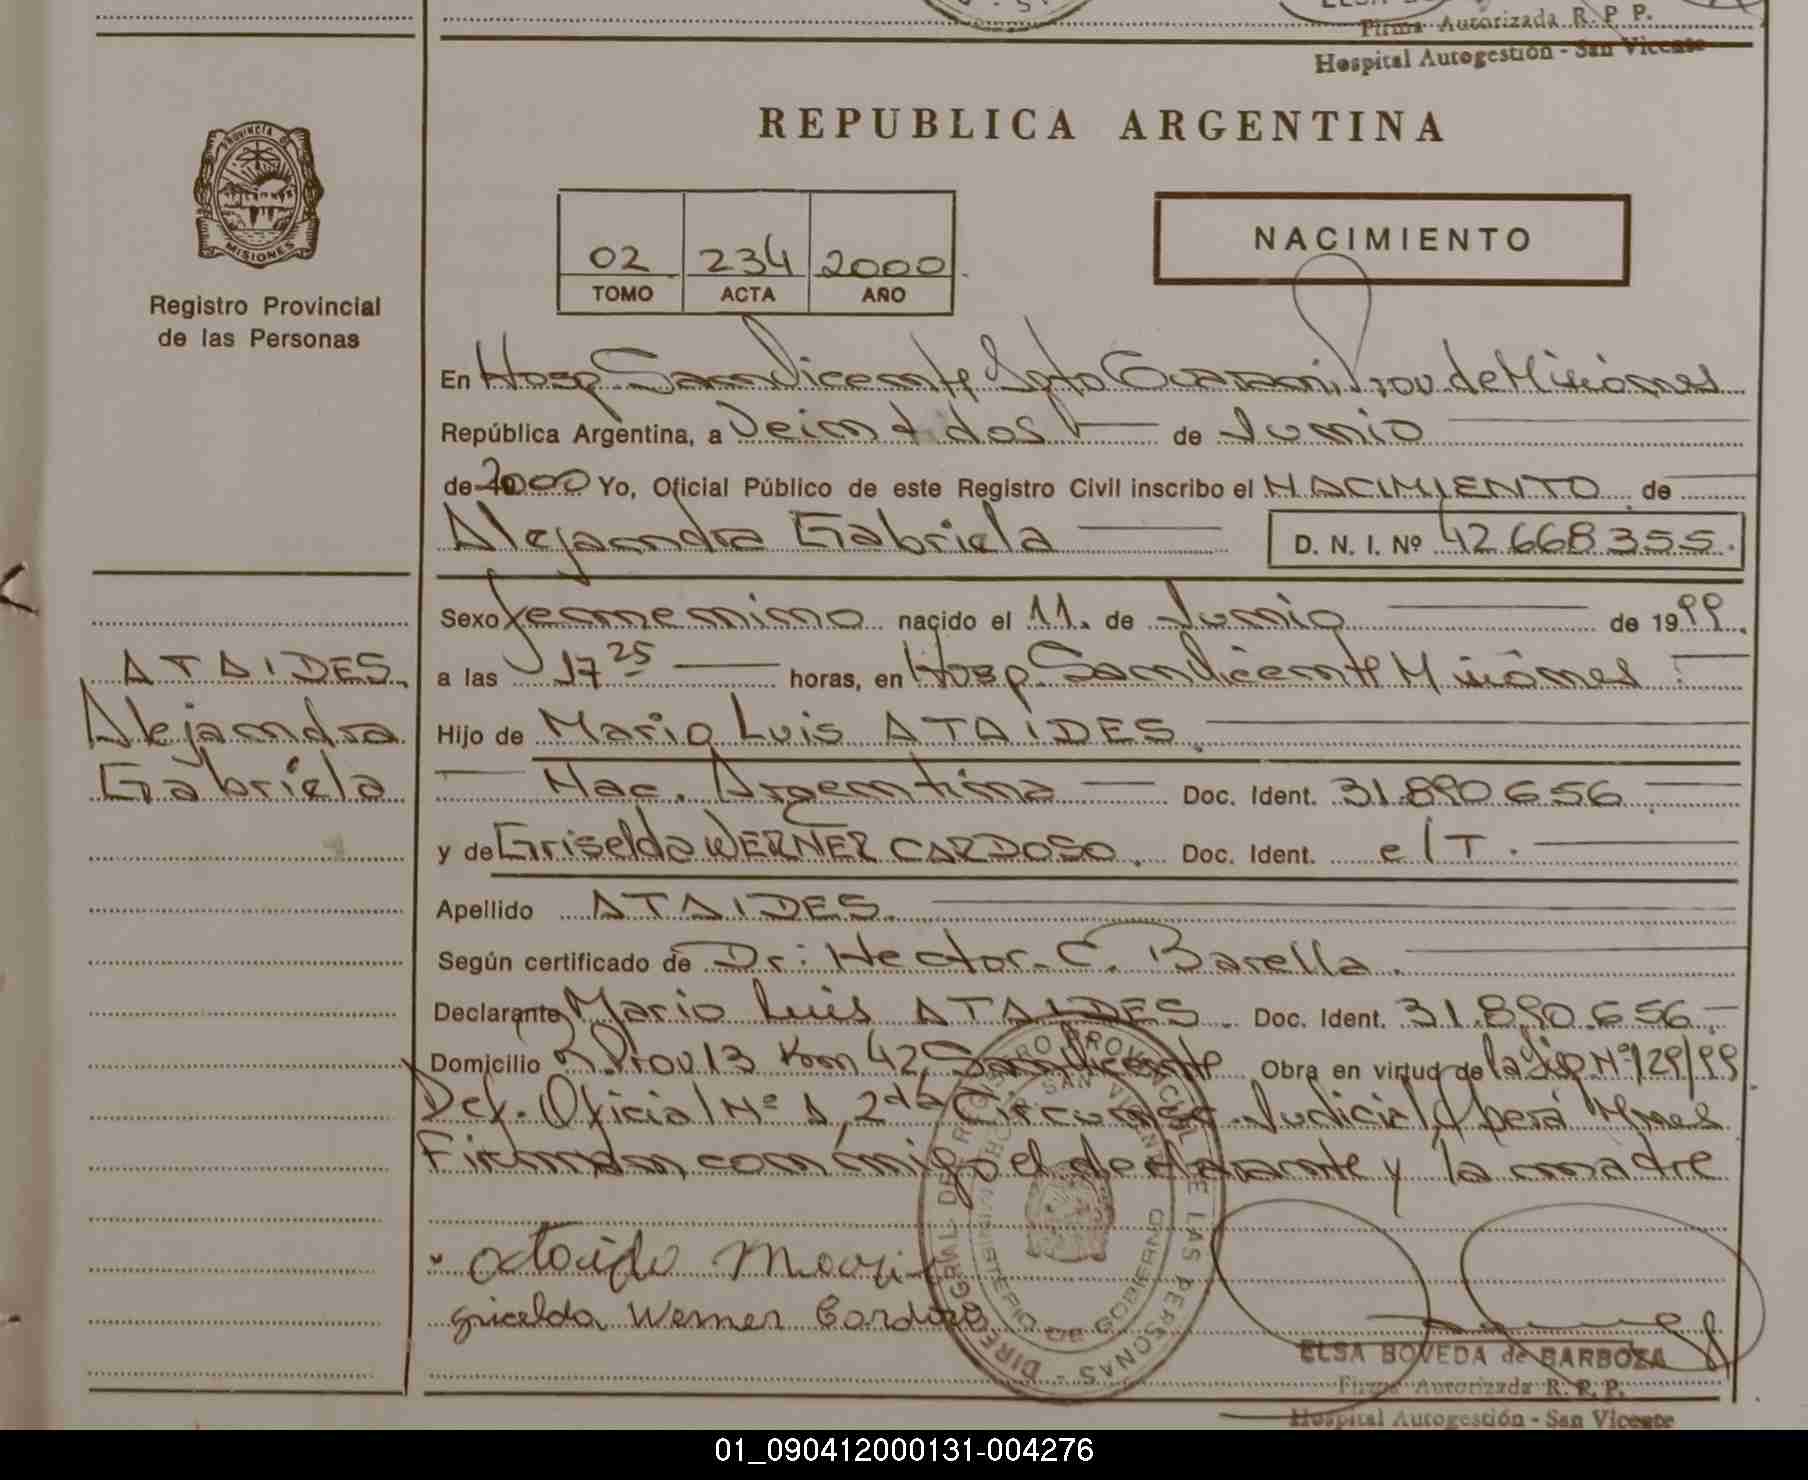 Firma Autorizada R. P. P.
Hospital Autogestión - San Vicente
REPUBLICA ARGENTINA
PROVINCIA DE MISIONES
Registro Provincial
de las Personas
02 234 2000
TOMO ACTA AÑO
NACIMIENTO
En Hosp San Vicente Dpto Guarani, Prov de Misiones
República Argentina, a Veint dos de Junio
de 2000 Yo, Oficial Público de este Registro Civil inscribo el NACIMIENTO de
Alejandra Gabriela D. N. I. Nº 42.668.355.
Sexo femenino nacido el 11. de Junio de 1999.
a las 17 25 horas, en Hosp San Vicente Misiones
ATAIDES
Alejandra
Gabriela
Hijo de Mario Luis ATAIDES.
Nac. Argentina Doc. Ident. 31.890.656
y de Griselda WERNER CARDOSO. Doc. Ident. e/T.
Apellido ATAIDES.
Según certificado de Dr: Hector C. Barella.
Declarante Mario Luis ATAIDES. Doc. Ident. 31.890.656
Domicilio R. Prov 13 Km 42 San Vicente Obra en virtud de la Nº 129/99
Def. Oficial Nº 1, 2da Circunsc. Judicial, Mnes
Firman conmigo el declarante y la madre
Griselda Werner Cardozo
DIREC. GRAL. DE REGISTRO PROVINCIAL DE LAS PERSONAS
MINISTERIO DE GOBIERNO
ELSA BOVEDA de BARBOZA
Firma Autorizada R. P. P.
Hospital Autogestión - San Vicente
01_090412000131-004276